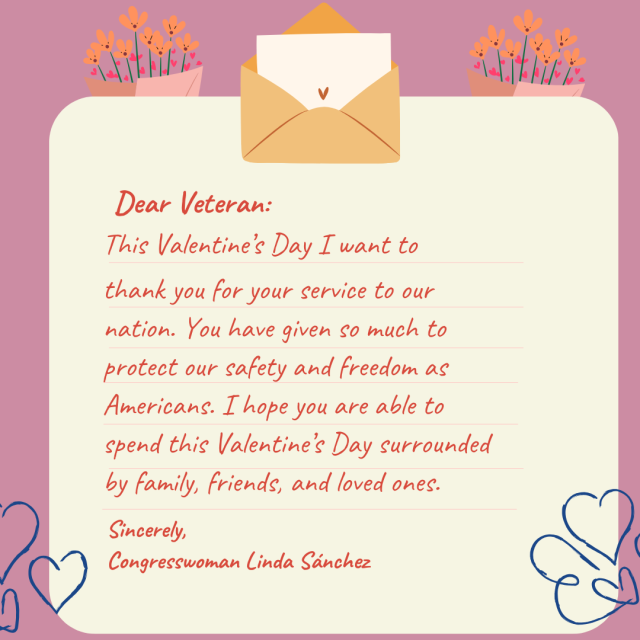 Dear Veteran:
This Valentine's Day I want to
thank you for your service to our
nation. You have given so much to
protect our safety and freedom as
Americans. I hope you are able to
spend this Valentine's Day surrounded
by family, friends, and loved ones.
Sincerely,
Congresswoman Linda Sánchez